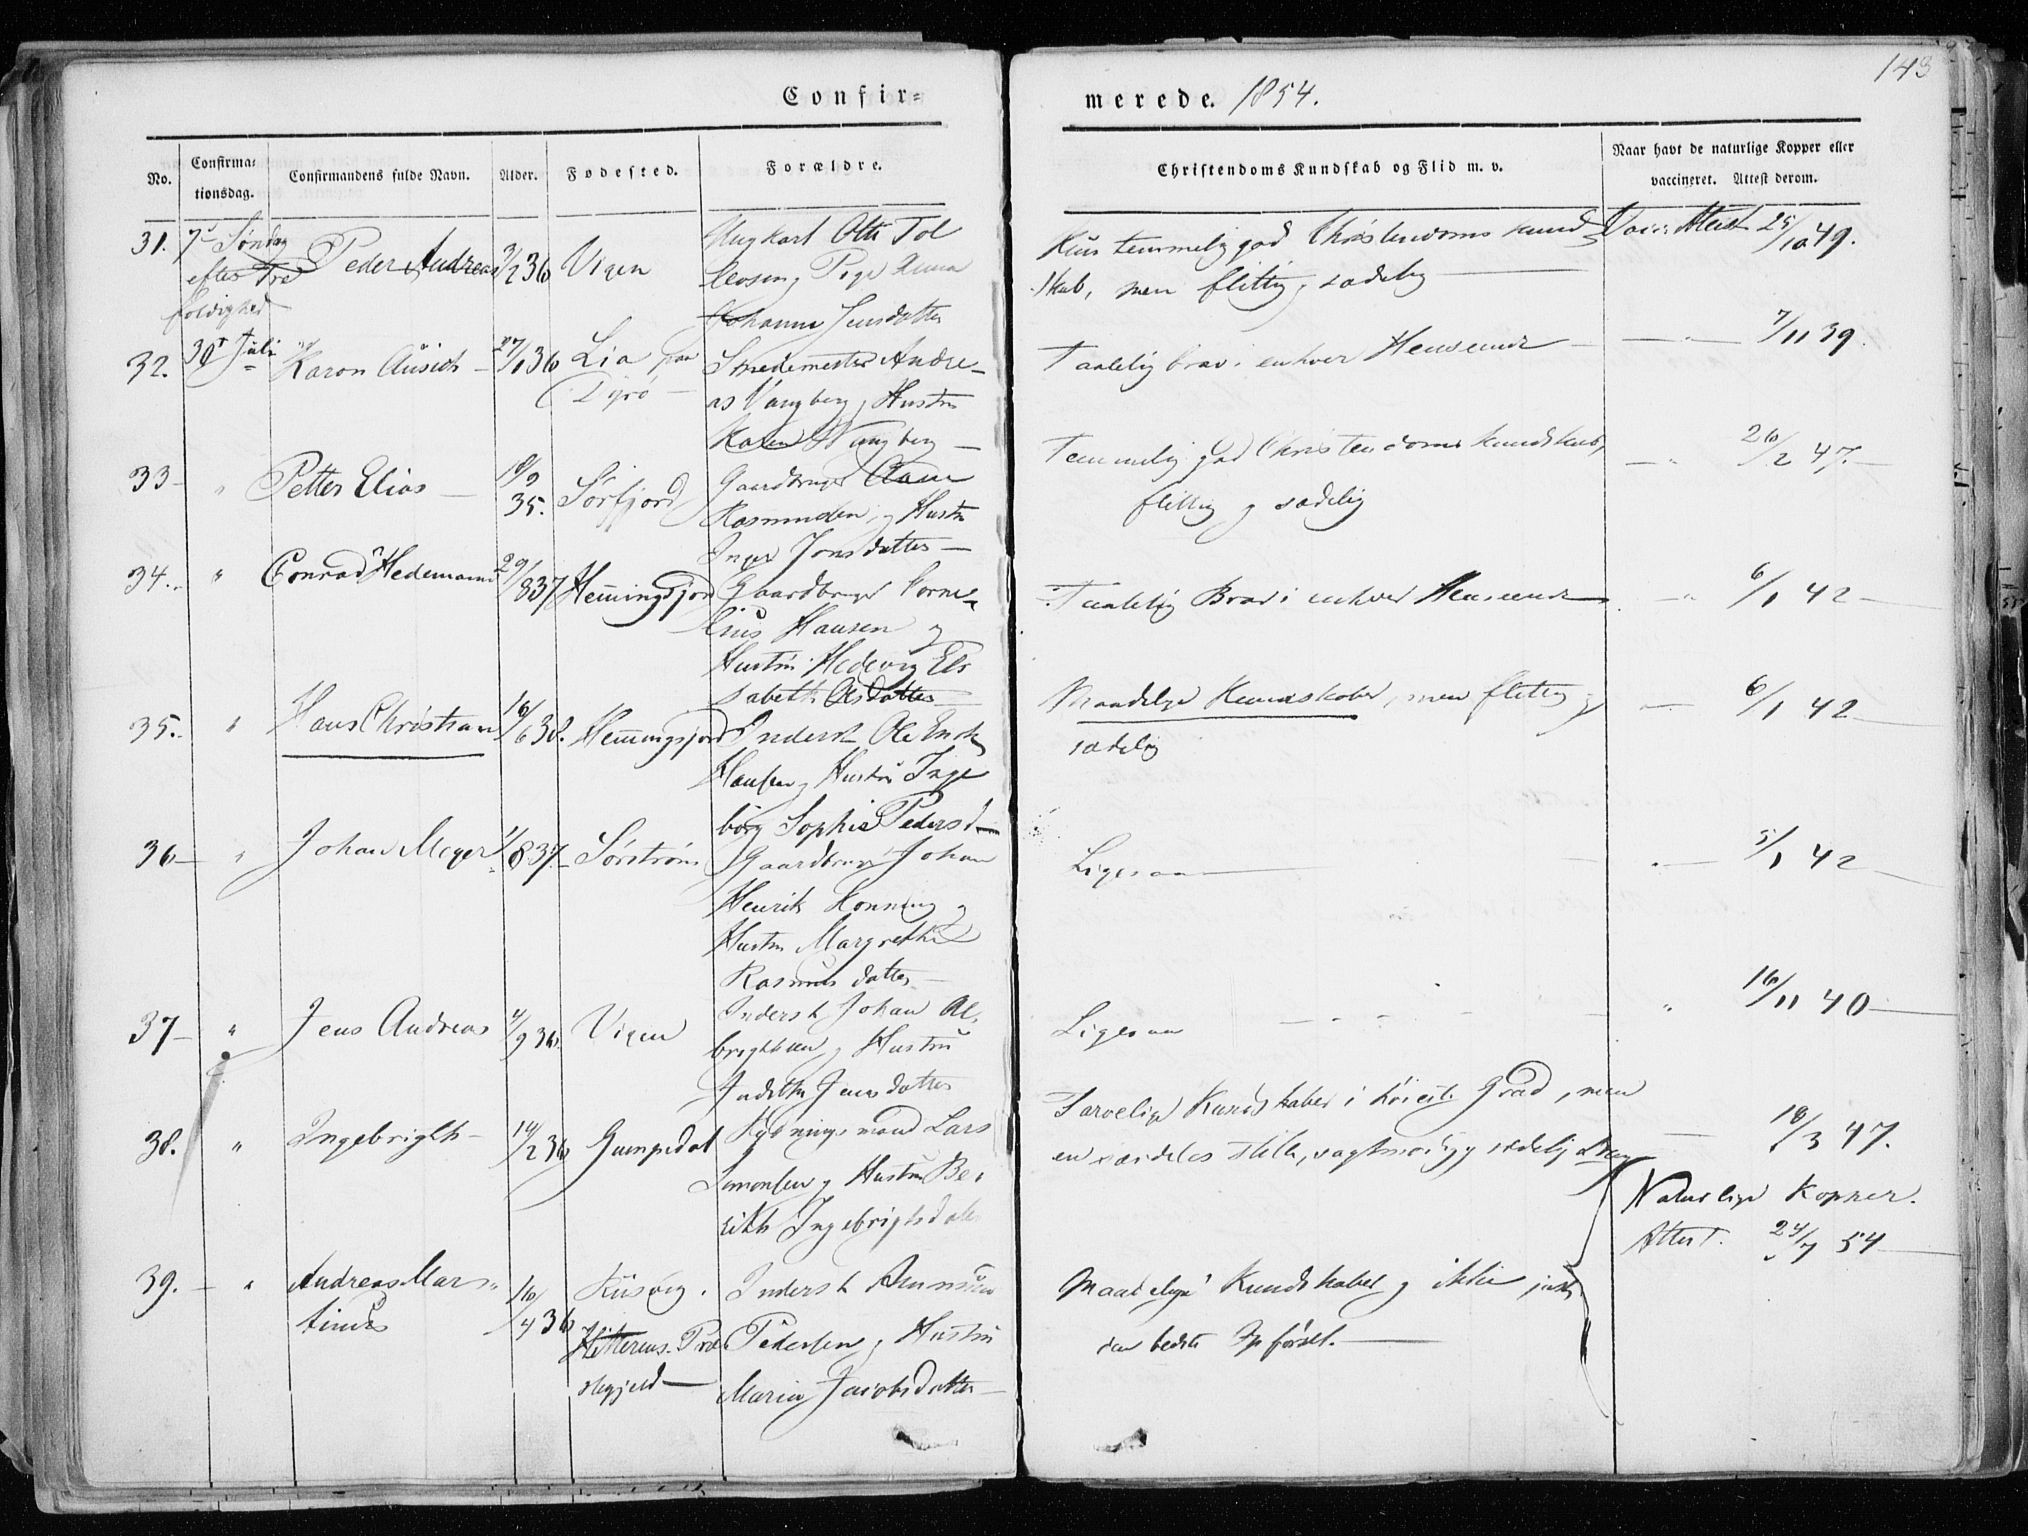 143
Confir=
merede. 1854.
No.
Confirma=
tionsdag.
Confirmandens fulde Navn.
Alder.
Fødested.
Forældre.
Christendoms Kundskab og Flid m. v.
Naar havt de naturlige Kopper eller
vaccineret. Attest derom.
31. 7de Søndag Peder Andreas 3/2 36 Vigen
efter Tre
foldighed
30t Juli
Ungkarl Tol
og Pige
Johanne Jensdatter
temmelig god Christendoms kund
skab, men flittig, sædelig
Attest 25/10 49.
32. Karen 27/1 36 Lia paa
Dyrø
Smedemester Andre
as Vangberg, Hustru
Karen Vangberg
Taalelig brav i enhver Henseende
7/11 39.
33 " Petter Elias 35. Sørfjord
Gaardbruger
Rasmussen, og Hustru
Inger Jonsdatter
Temmelig god Christendoms kundskab,
flittig og sædelig
26/2 47.
34. " Conrad Hedemann 29/8 37 Hemingsfjord
Gaardbruger Corne
lius Hansen og
Hustru Hedevig Els
sabeth Olsdatter
Taalelig Brav i enhver Henseende
6/1 42
35. " Hans Christian 16/6 38. Hemingsfjord
Inderst Ole
Hansen og Hustru Inge
borg Sophie Pedersd
Maadelige Kundskaber, men flittig og
sædelig
6/1 42
36 " Johan Meyer 1/8 37. Sørstrøm
Gaardbruger Johan
Henrik Konning og
Hustru Margrethe
Rasmus datter
Ligesaa
5/1 42
37 " Jens Andreas 4/9 36. Vigen
Inderst Johan Al
brightsen og Hustru
Judithe Jensdatter
Ligesaa
" 16/11 40
38. " Ingebrigth 14/2 36 Gumpedal
Rydningsmand Lars
Simonsen og Hustru Be
rith Ingebrigtsdatter
Tarvelige Kundskaber i høieste Grad, men
en særdeles stille, sagtmodig og sædelig Dreng
18/3 47.
39. " Andreas Mar
tinus
16/4 36
Præ
stegjeld
Inderst
Pedersen og Hustru
Maria Jacobsdatter
Maadelige Kundskaber og ikke just
den bedste Opførsel.
Naturlige Kopper.
Attest. 24/7 54